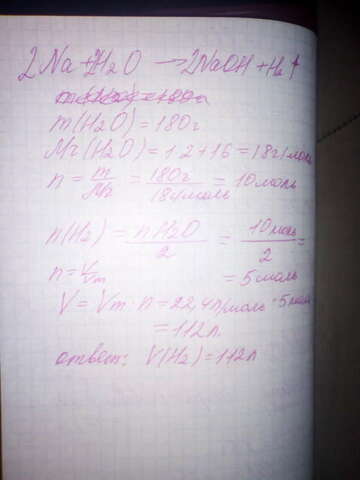 2Na + 2H2O → 2NaOH + H2↑
m(H2O) = 180г
m(H2O) = 180г
Mr(H2O) = 1·2+16 = 18г/моль
n = m/Mr = 180г/18г/моль = 10моль
n(H2) = nH2O/2 = 10моль/2 =
n = V/Vm = 5моль
V = Vm · n = 22,4л/моль · 5моль
= 112л.
ответ: V(H2) = 112л